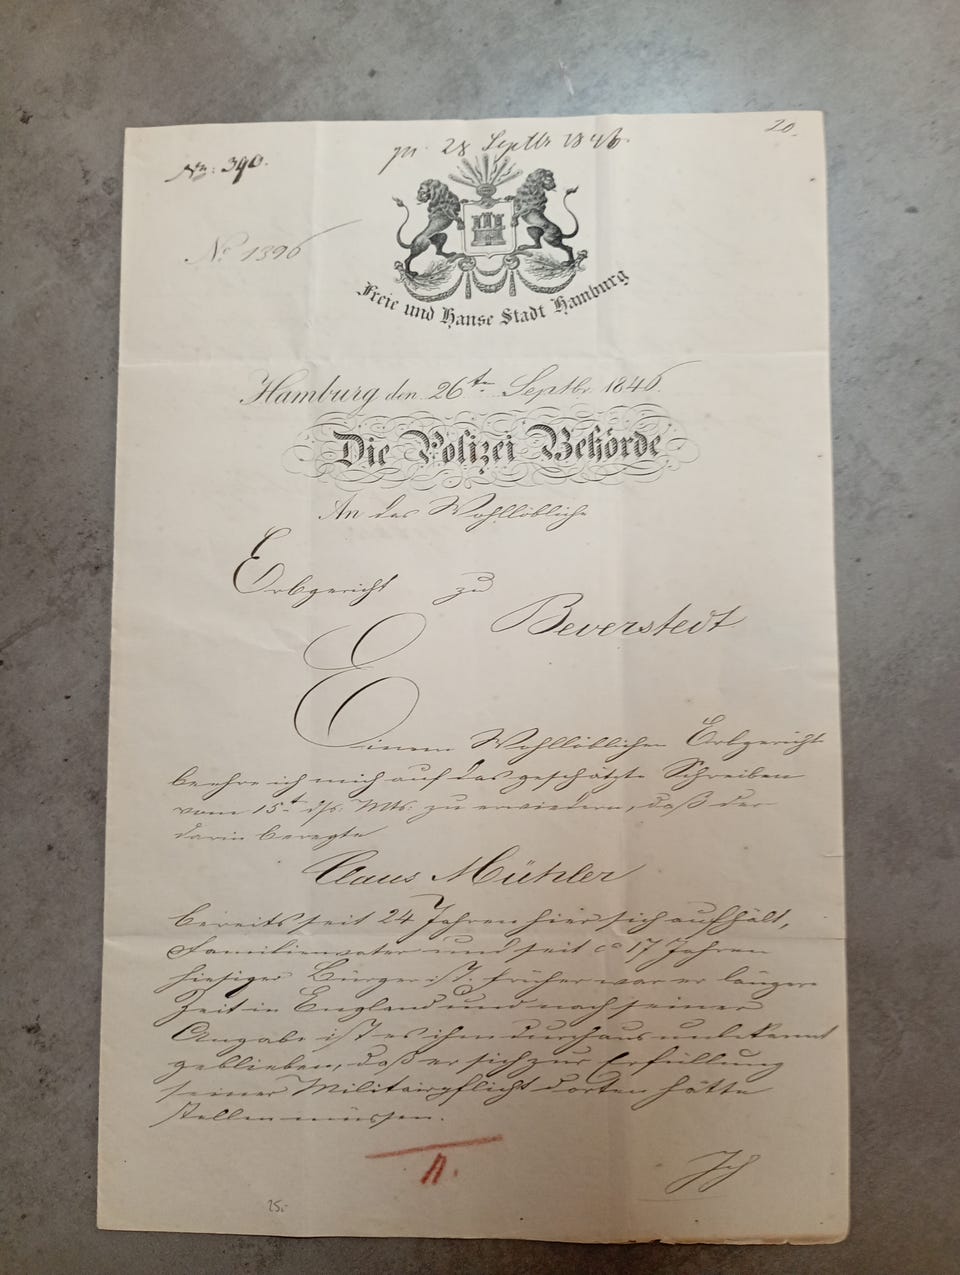 20.
pr. 28 Septbr 1846.
No: 390.
No 1396
Freie und Hanse Stadt Hamburg
Hamburg den 26tn Septbr. 1846.
Die Polizei Behörde
An das Wohllöbliche
Erbgericht zu
Beverstedt
Einem Wohllöblichen Erbgericht
beehre ich mich auf das geschätzte Schreiben
vom 15t ds. Mts: zu erwiedern, daß der
darin beregte
Claus Mühler
bereits seit 24 Jahren hier sich aufhält,
Familienvater und seit ca 17 Jahren
hiesiger Bürger ist, früher war er längere
Zeit in England und nach seiner
Angabe ist es ihm durchaus unbekannt
geblieben, daß er sich zur Erfüllung
seiner Militairpflicht dorten hätte
stellen müssen.
Ich
25.-